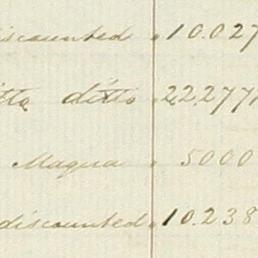 iscounted " 10.027
tto ditto " 22.277
Magua " 5000
discounted " 10.238